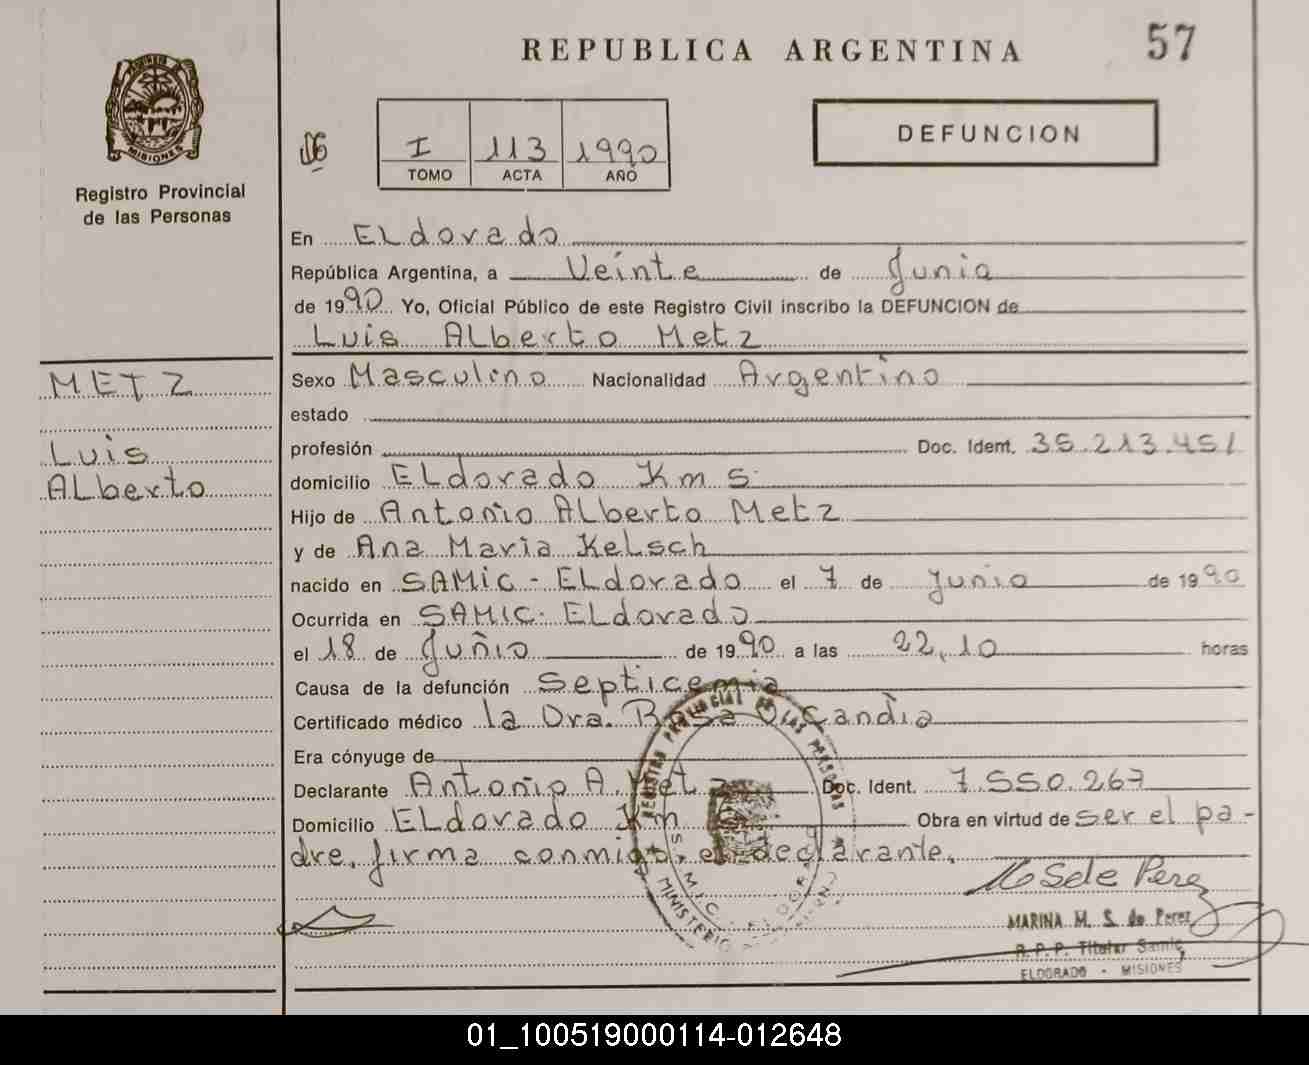 REPUBLICA ARGENTINA
57
MISIONES
Registro Provincial
de las Personas
I 113 1990
TOMO ACTA AÑO
DEFUNCION
En ELdorado
República Argentina, a Veinte de Junio
de 1990 Yo, Oficial Público de este Registro Civil inscribo la DEFUNCION de
Luis ALberto Metz
METZ
Luis
ALberto
Sexo Masculino Nacionalidad Argentino
estado
profesión Doc. Ident. 35.213.451
domicilio ELdorado Km 5
Hijo de Antonio ALberto Metz
y de Ana Maria KeLsch
nacido en SAMiC - ELdorado el 7 de Junio de 1990
Ocurrida en SAMIC - ELdorado
el 18 de Junio de 1990 a las 22,10 horas
Causa de la defunción Septicemia
Certificado médico la Dra. Rosa O. Candia
Era cónyuge de
Declarante Antonio A. Metz Doc. Ident. 7.550.267
Domicilio ELdorado Km Obra en virtud de ser el pa-
dre, firma conmigo el declarante.
REGISTRO PROVINCIAL DE LAS PERSONAS
S.A.M.I.C. - ELDORADO
MINISTERIO
MSde Perez
MARINA M. S. de Perez
R.P.P. Titular Samic,
ELDORADO - MISIONES
01_100519000114-012648